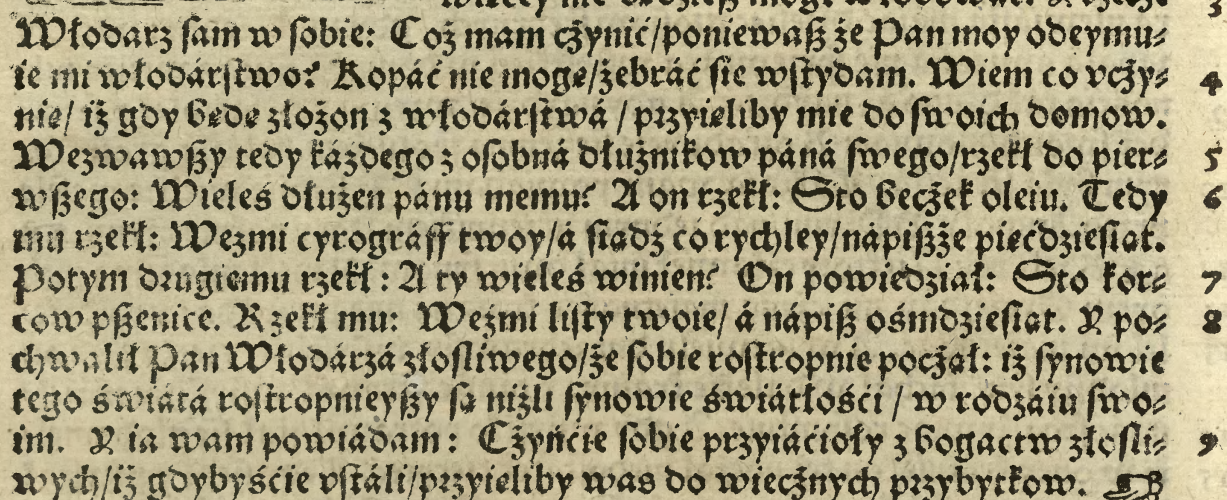 Włodarz ſam w ſobie: Coż mam cżynić/ponieważ że Pan moy odeymu⸗ 3
ie mi włodárſtwo? Kopáć nie mogę/żebráć ſię wſtydam. Wiem co vcży⸗ 4
nię/ iż gdy będę złożon z włodárſtwá / przyięliby mię do ſwoich domow.
Wezwawßy tedy káżdego z oſobná dłużnikow páná ſwego/rzekł do pier⸗ 5
wßego: Wieleś dłużen pánu memu? A on rzekł: Sto becżek oleiu. Tedy 6
mu rzekł: Weźmi cyrográff twoy/á ſiądź co rychley/nápißże pięćdzieſiąt.
Potym drugiemu rzekł: A ty wieleś winien? On powiedział: Sto kor⸗ 7
cow pßenice. Rzekł mu: Weźmi liſty twoie/ á nápiß ośmdzieſiąt. Y po⸗ 8
chwalił Pan Włodárzá złoſliwego/że ſobie roſtropnie pocżął: iż ſynowie
tego świátá roſtropnieyßy ſą niżli ſynowie świátłośći / w rodzáiu ſwo⸗
im. Y ia wam powiádam: Cżyńćie ſobie przyiáćioły z bogactw złoſli⸗ 9
wych/iż gdybyśćie vſtáli/przyięliby was do wiecżnych przybytkow.